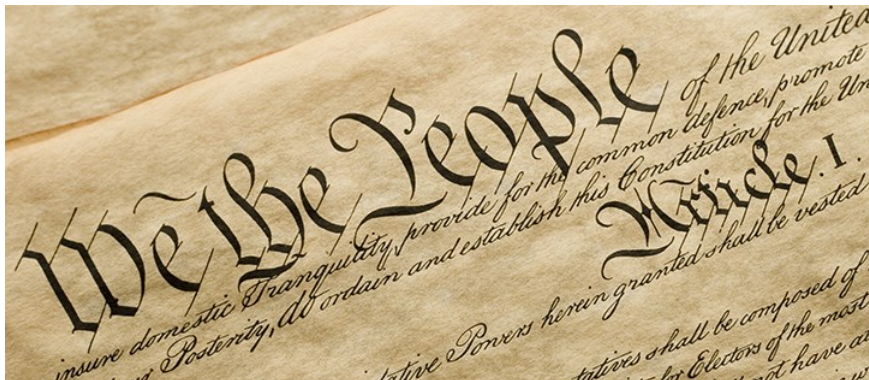 We the People of the United
insure domestic Tranquility, provide for the common defence, promote
Posterity, do ordain and establish this Constitution for the Un
Article. I.
lative Powers herein granted shall be vested
tatives shall be composed of
for Electors of the most
not have